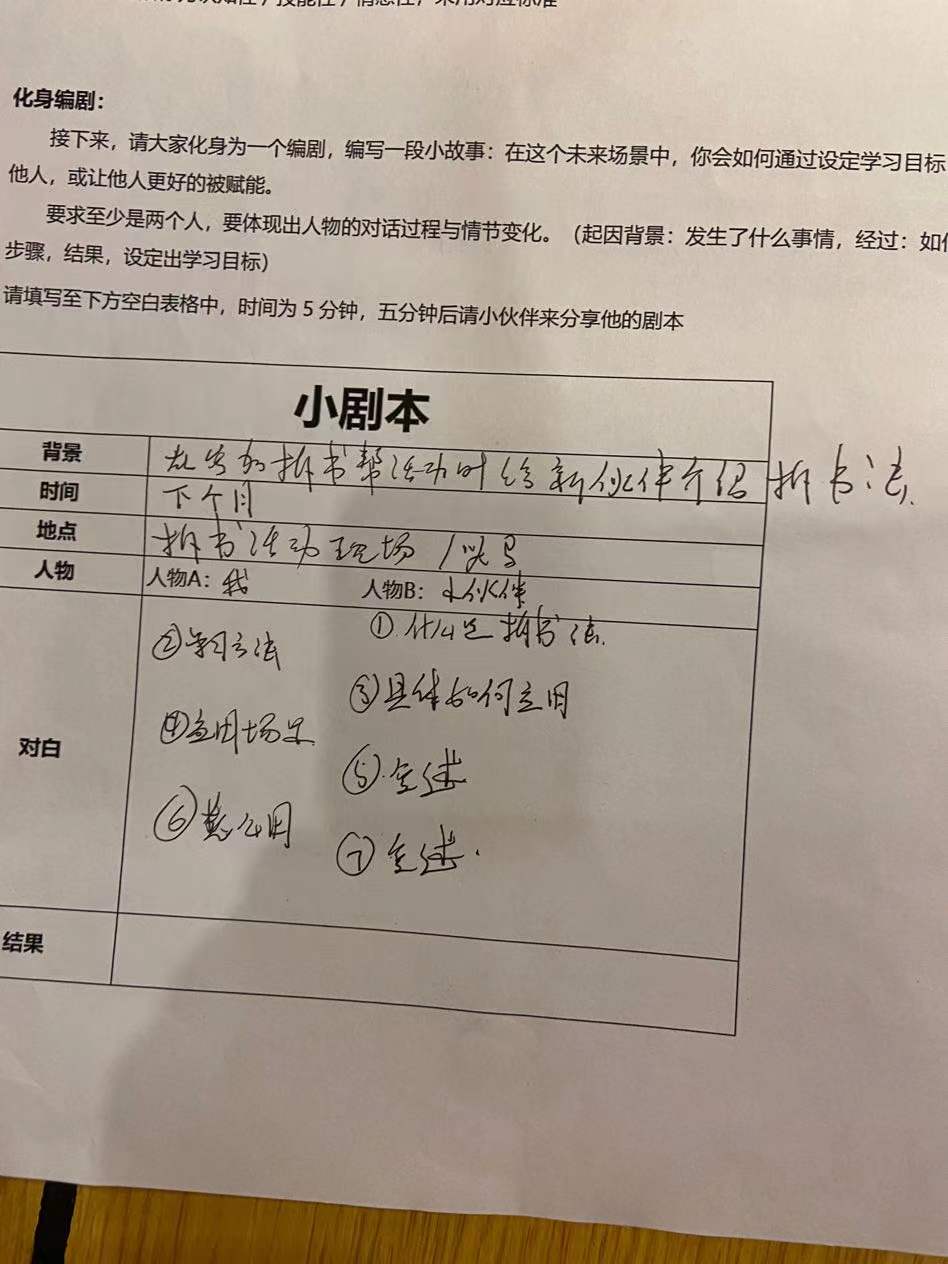 化身编剧：
接下来，请大家化身为一个编剧，编写一段小故事：在这个未来场景中，你会如何通过设定学习目标
他人，或让他人更好的被赋能。
要求至少是两个人，要体现出人物的对话过程与情节变化。（起因背景：发生了什么事情，经过：如何
步骤，结果，设定出学习目标）
请填写至下方空白表格中，时间为 5 分钟，五分钟后请小伙伴来分享他的剧本
小剧本
背景 在参加拆书帮活动时给新伙伴介绍拆书法.
时间 下个月
地点 拆书活动现场
人物 人物A：我 人物B：小伙伴
①.什么是拆书法.
②学习方法
③具体如何应用
④应用场景
对白
⑤.复述
⑥怎么用
⑦复述.
结果